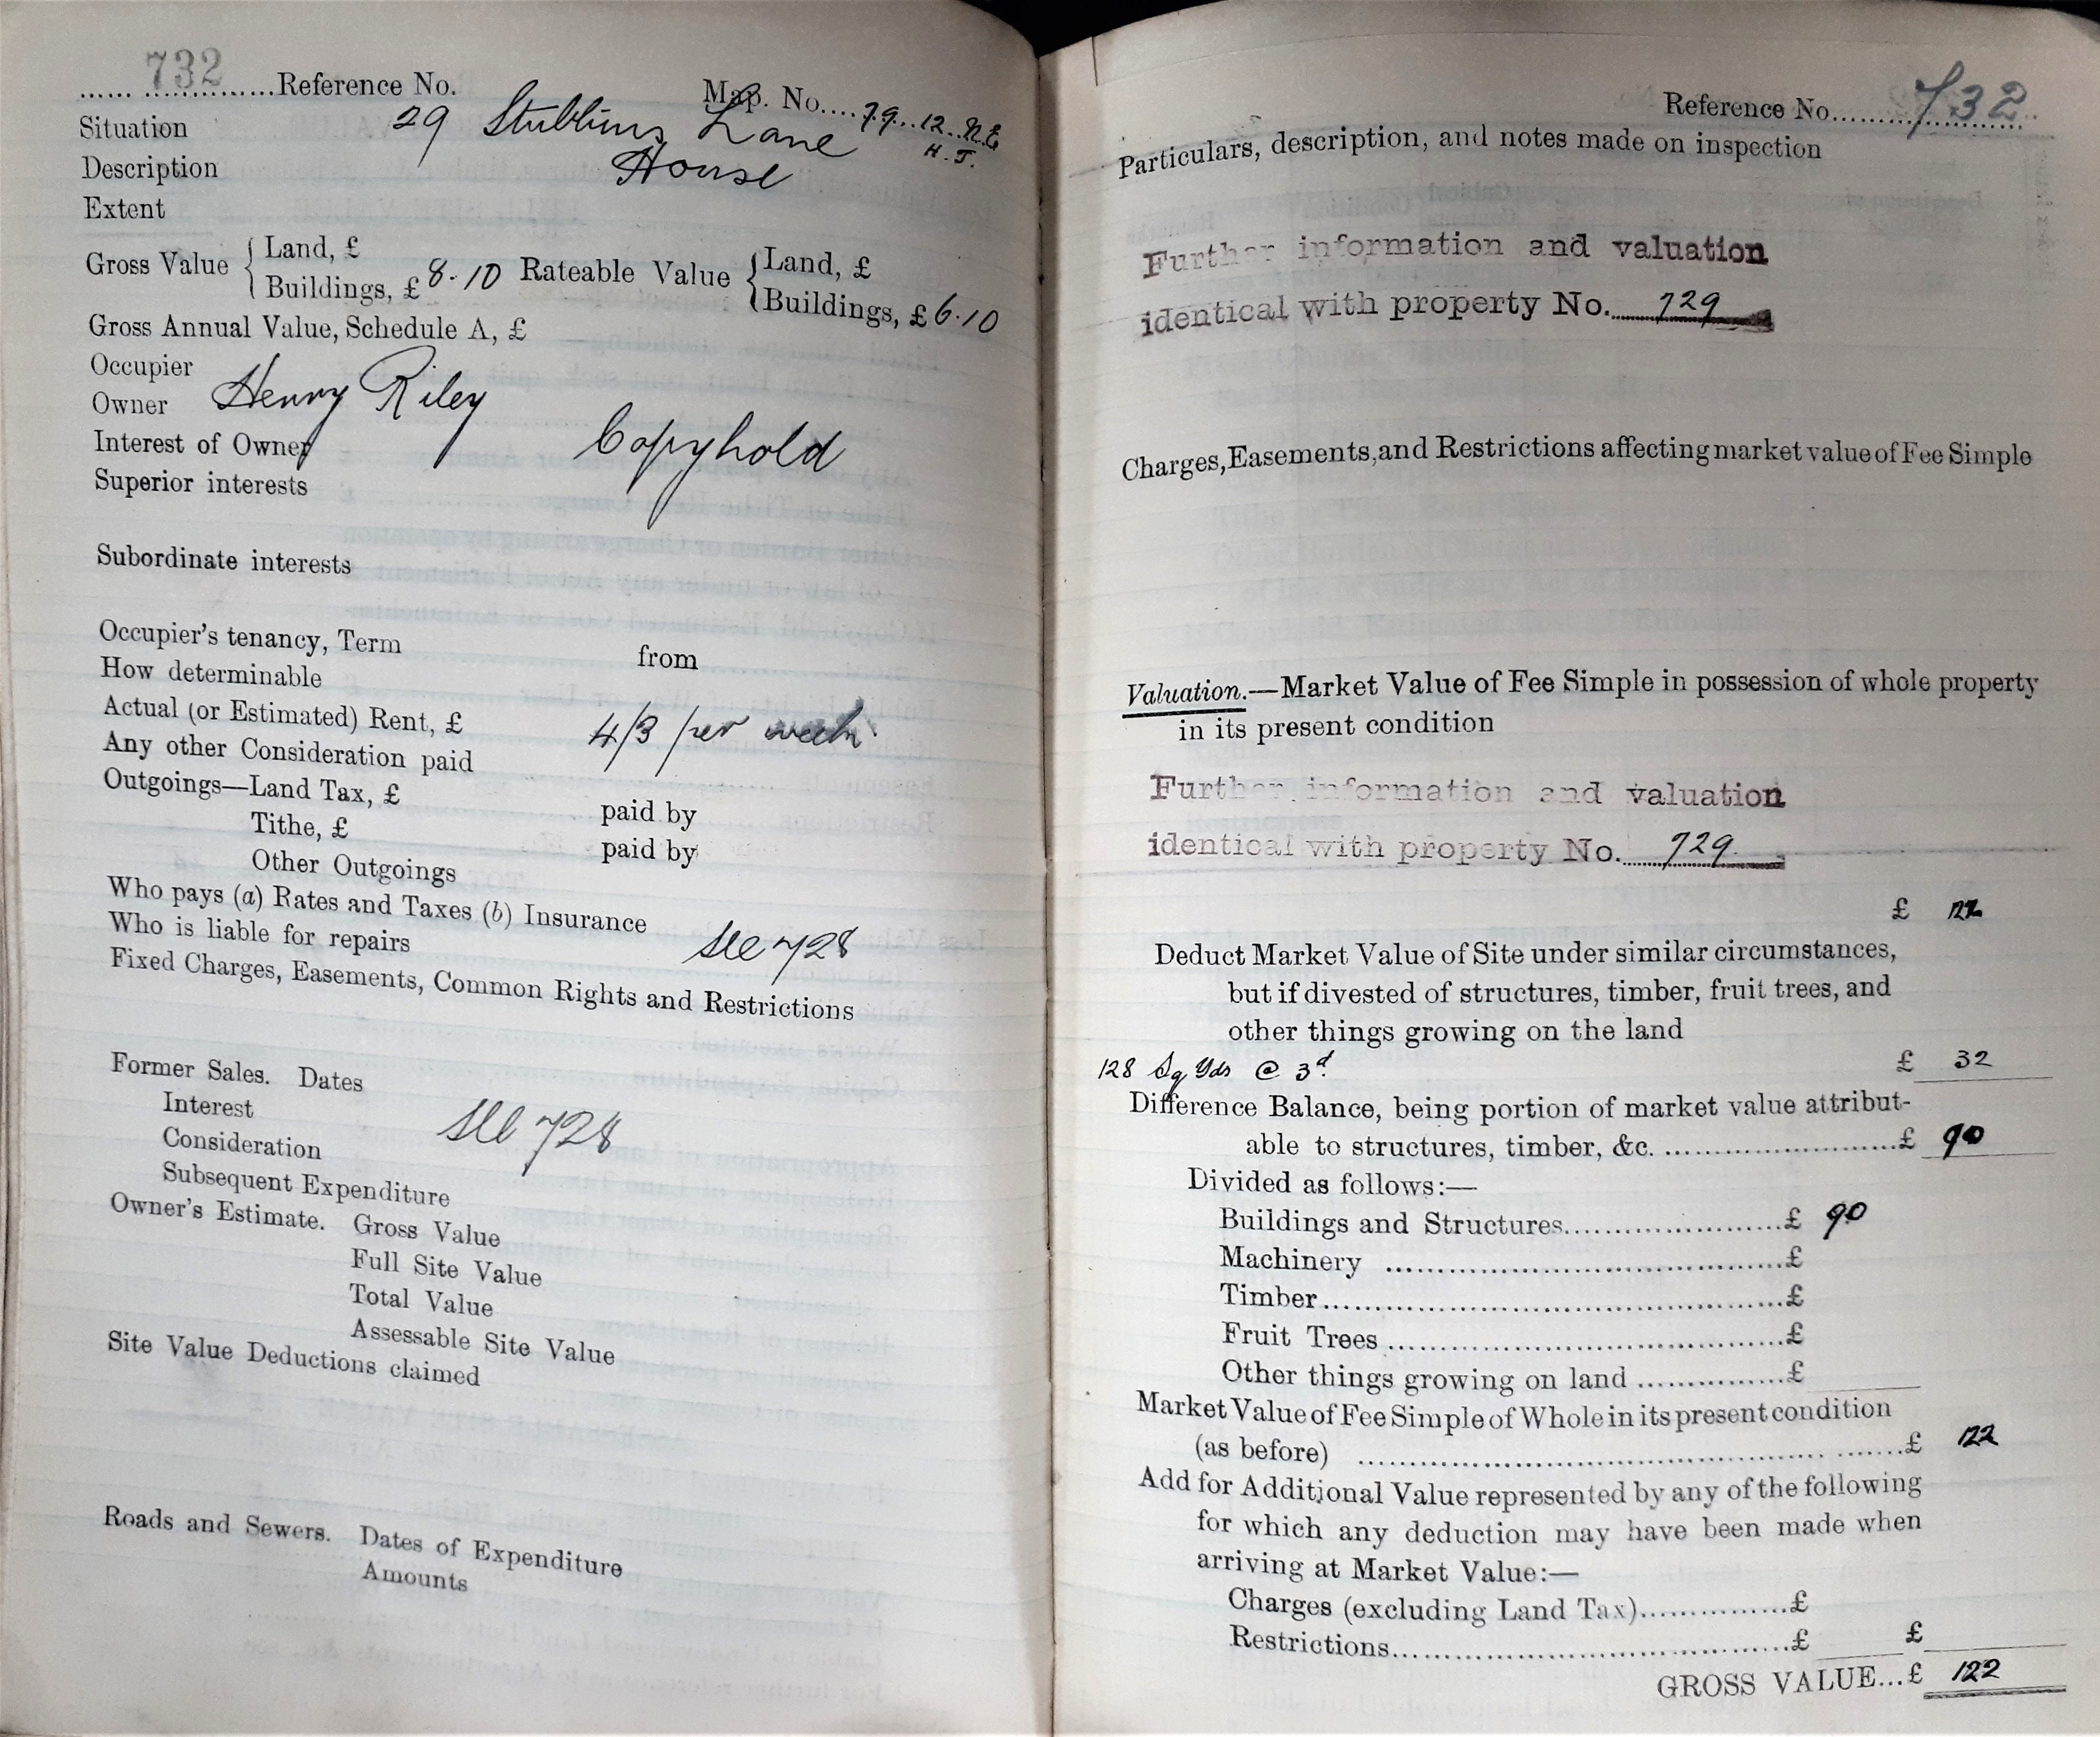 732 Reference No. Map. No. 79.12.N.E
H.J.
Situation 29 Stubbins Lane
Description House
Extent
Gross Value { Land, £
Buildings, £ 8.10 Rateable Value { Land, £
Buildings, £ 6.10
Gross Annual Value, Schedule A, £
Occupier
Owner Henry Riley
Interest of Owner Copyhold
Superior interests
Subordinate interests
Occupier's tenancy, Term from
How determinable
Actual (or Estimated) Rent, £ 4/3 per week
Any other Consideration paid
Outgoings—Land Tax, £ paid by
Tithe, £ paid by
Other Outgoings
Who pays (a) Rates and Taxes (b) Insurance
Who is liable for repairs see 728
Fixed Charges, Easements, Common Rights and Restrictions
Former Sales. Dates
Interest
Consideration see 728
Subsequent Expenditure
Owner's Estimate. Gross Value
Full Site Value
Total Value
Assessable Site Value
Site Value Deductions claimed
Roads and Sewers. Dates of Expenditure
Amounts
Reference No. 732
Particulars, description, and notes made on inspection
Further information and valuation
identical with property No. 729
Charges, Easements, and Restrictions affecting market value of Fee Simple
Valuation.—Market Value of Fee Simple in possession of whole property
in its present condition
Further information and valuation
identical with property No. 729
£ 122
Deduct Market Value of Site under similar circumstances,
but if divested of structures, timber, fruit trees, and
other things growing on the land
128 Sq Yds @ 3d £ 32
Difference Balance, being portion of market value attribut-
able to structures, timber, &c. £ 90
Divided as follows:—
Buildings and Structures £ 90
Machinery £
Timber £
Fruit Trees £
Other things growing on land £
Market Value of Fee Simple of Whole in its present condition
(as before) £ 122
Add for Additional Value represented by any of the following
for which any deduction may have been made when
arriving at Market Value:—
Charges (excluding Land Tax) £
Restrictions £ £
GROSS VALUE... £ 122